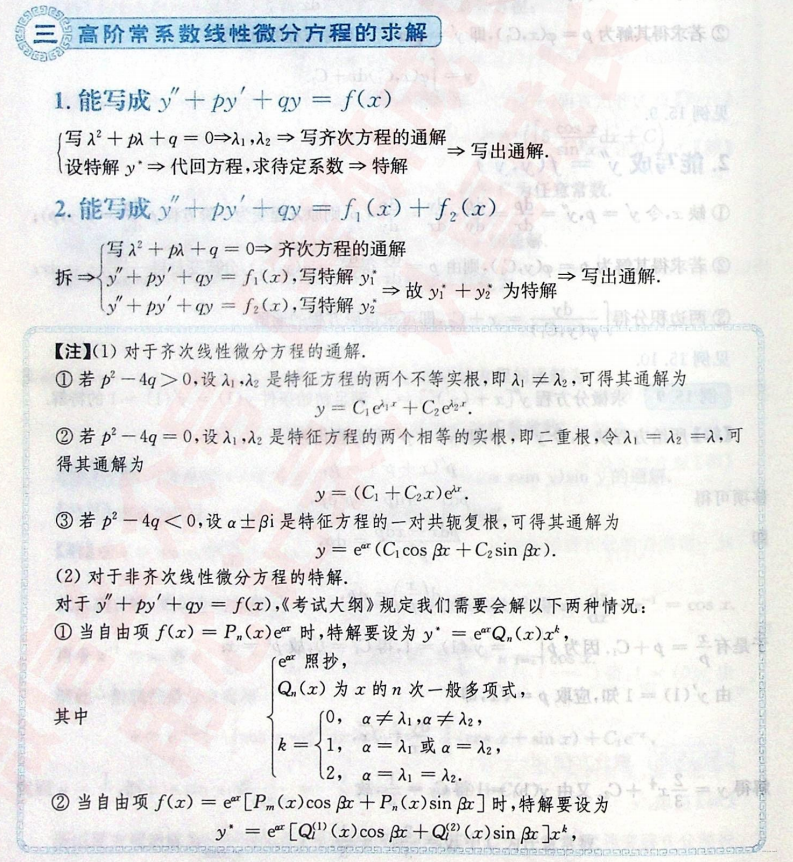 三 高阶常系数线性微分方程的求解
1. 能写成 y″ + py′ + qy = f(x)
{写 λ² + pλ + q = 0⇒λ₁,λ₂ ⇒ 写齐次方程的通解
设特解 y* ⇒ 代回方程,求待定系数 ⇒ 特解
⇒ 写出通解.
2. 能写成 y″ + py′ + qy = f₁(x) + f₂(x)
拆⇒
{写 λ² + pλ + q = 0⇒ 齐次方程的通解
y″ + py′ + qy = f₁(x),写特解 y₁*
y″ + py′ + qy = f₂(x),写特解 y₂*
⇒ 故 y₁* + y₂* 为特解
⇒ 写出通解.
【注】(1) 对于齐次线性微分方程的通解.
① 若 p² − 4q > 0,设 λ₁,λ₂ 是特征方程的两个不等实根,即 λ₁ ≠ λ₂,可得其通解为
y = C₁e^{λ₁x} + C₂e^{λ₂x}.
② 若 p² − 4q = 0,设 λ₁,λ₂ 是特征方程的两个相等的实根,即二重根,令 λ₁ = λ₂ = λ,可
得其通解为
y = (C₁ + C₂x)e^{λx}.
③ 若 p² − 4q < 0,设 α ± βi 是特征方程的一对共轭复根,可得其通解为
y = e^{αx}(C₁cos βx + C₂sin βx).
(2) 对于非齐次线性微分方程的特解.
对于 y″ + py′ + qy = f(x),《考试大纲》规定我们需要会解以下两种情况:
① 当自由项 f(x) = Pₙ(x)e^{αx} 时,特解要设为 y* = e^{αx}Qₙ(x)x^k,
其中
{e^{αx} 照抄,
Qₙ(x) 为 x 的 n 次一般多项式,
k = {0, α ≠ λ₁,α ≠ λ₂,
1, α = λ₁ 或 α = λ₂,
2, α = λ₁ = λ₂.
② 当自由项 f(x) = e^{αx}[Pₘ(x)cos βx + Pₙ(x)sin βx] 时,特解要设为
y* = e^{αx}[Q_l^{(1)}(x)cos βx + Q_l^{(2)}(x)sin βx]x^k,